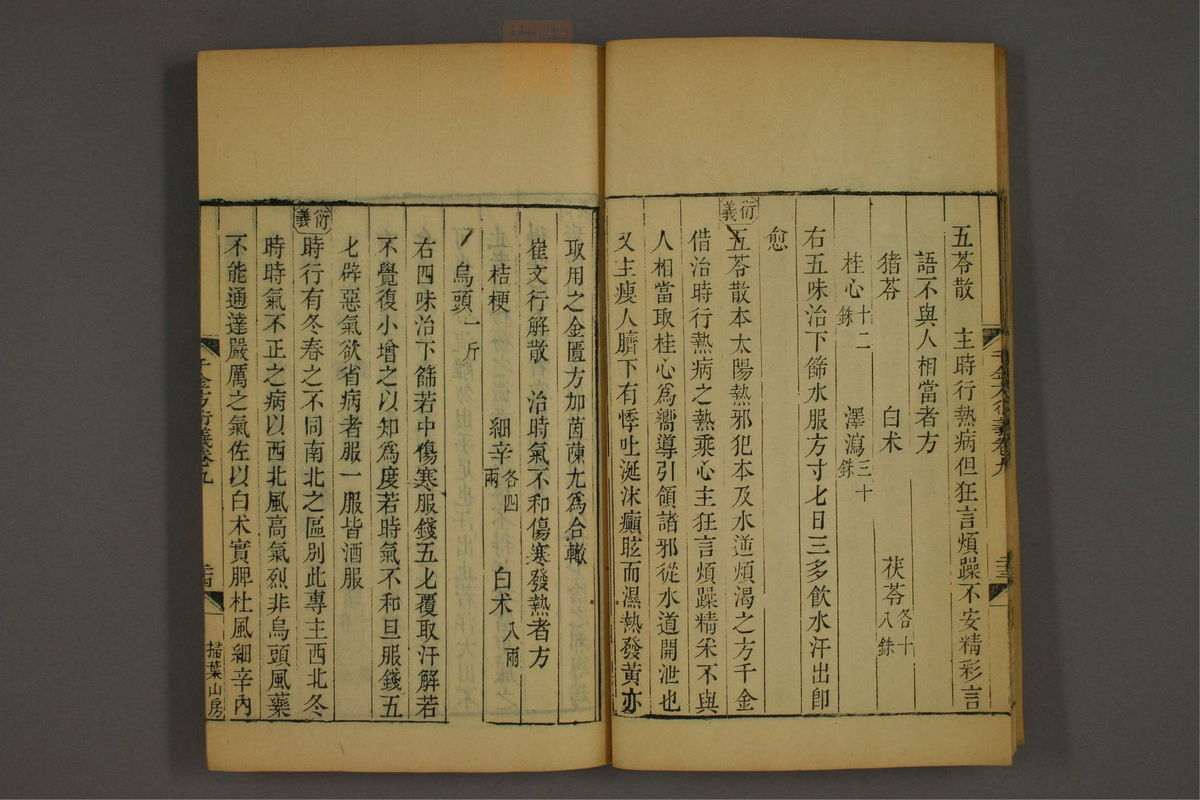 五苓散　主時行熱病但狂言煩躁不安精彩言
語不與人相當者方
猪苓　白术　茯苓各十八銖
桂心十二銖　澤瀉三十銖
右五味治下篩水服方寸匕日三多飲水汗出卽
愈
衍義
五苓散本太陽熱邪犯本及水逆煩渴之方千金
借治時行熱病之熱乘心主狂言煩躁精采不與
人相當取桂心爲嚮導引領諸邪從水道開泄也
又主瘦人臍下有悸吐涎沫癲眩而濕熱發黃亦
千金方衍義卷九　三十三
取用之金匱方加茵蔯尢爲合轍
崔文行解散　治時氣不和傷寒發熱者方
桔梗　細辛各四兩　白术八兩
烏頭一斤
右四味治下篩若中傷寒服錢五匕覆取汗解若
不覺復小增之以知爲度若時氣不和旦服錢五
匕辟惡氣欲省病者服一服皆酒服
衍義
時行有冬春之不同南北之區別此專主西北冬
時時氣不正之病以西北風高氣烈非烏頭風藥
不能通達嚴厲之氣佐以白术實脾杜風細辛內
千金方衍義卷九　三十四　掃葉山房